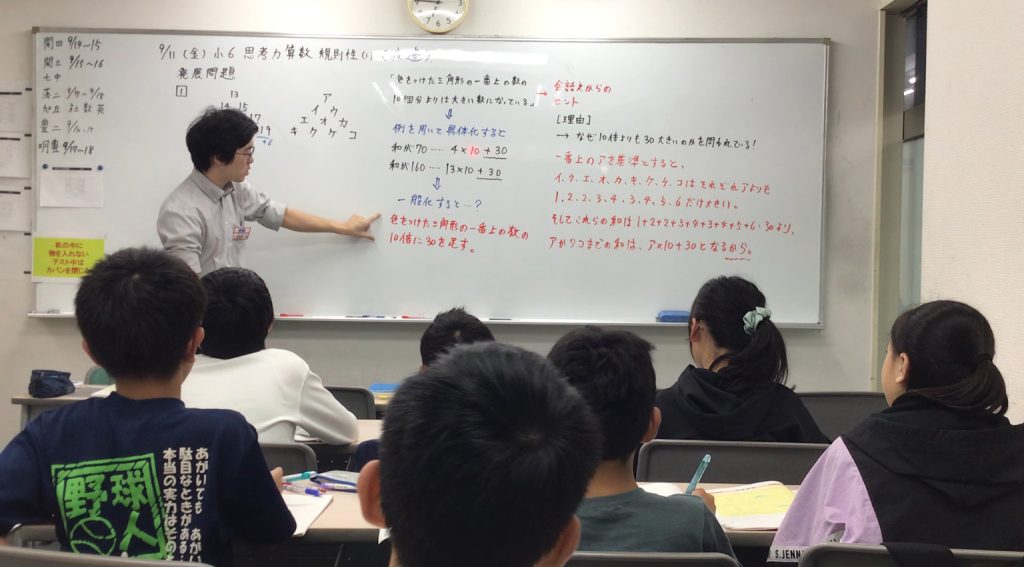 9/11 (金) 小6 思考力算数 規則性
発展問題
1
13
19
+6
ア
イ ウ
エ オ カ
キ ク ケ コ
「色をつけた三角形の一番上の数の
10個分よりは大きい数になっている」
→ 会話文からの
ヒント
⇓
例を用いて具体化すると
和が70‥‥ 4×10+30
和が160‥‥ 13×10+30
⇓
一般化すると…?
色をつけた三角形の一番上の数の
10倍に30を足す。
[理由]
→ なぜ10倍よりも30大きいのかを問われている!
一番上のアを基準とすると、
イ、ウ、エ、オ、カ、キ、ク、ケ、コはそれぞれアよりも
1、2、2、3、4、3、4、5、6だけ大きい。
そしてこれらの和は1+2+2+3+4+3+4+5+6=30より、
アからコまでの和は、ア×10+30となるから。
9/14~15
9/15~16
七中
9/17~18
豊二
9/17~18
机の中に
物を入れない
テスト中は
カバンを閉じる
野球人
あがいても あがい
駄目なときがある
本当の実力はその
S.JENN